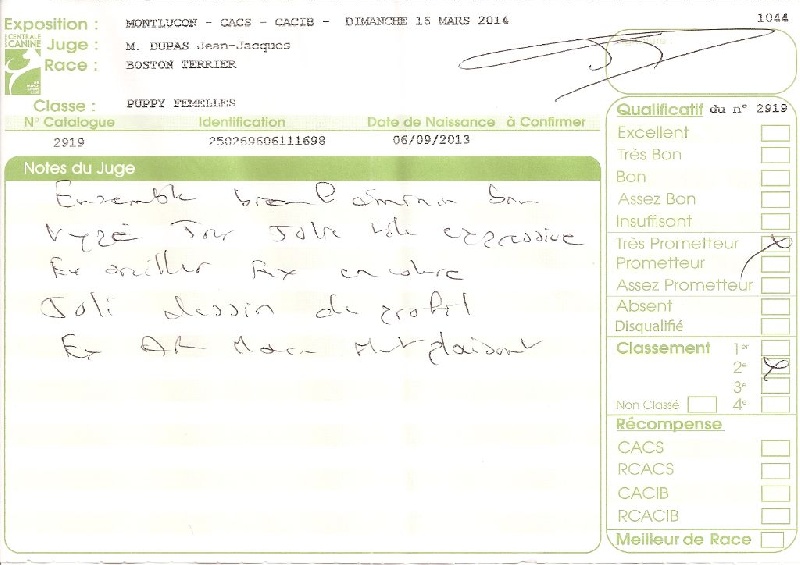 Exposition : MONTLUCON - CACS - CACIB - DIMANCHE 15 MARS 2014
1044
CENTRALE CANINE
Juge : M. DUPAS Jean-Jacques
Race : BOSTON TERRIER
Classe : PUPPY FEMELLES
N° Catalogue Identification Date de Naissance à Confirmer
2919 250269606111698 06/09/2013
Notes du Juge
Ensemble bien bon
Joli expressive
Ex oreilles Ex encolure
Joli dessin de profil
Ex plaisant
Qualificatif du n° 2919
Excellent
Très Bon
Bon
Assez Bon
Insuffisant
Très Prometteur
Prometteur
Assez Prometteur
Absent
Disqualifié
Classement 1er
2e
3e
Non Classé 4e
Récompense
CACS
RCACS
CACIB
RCACIB
Meilleur de Race